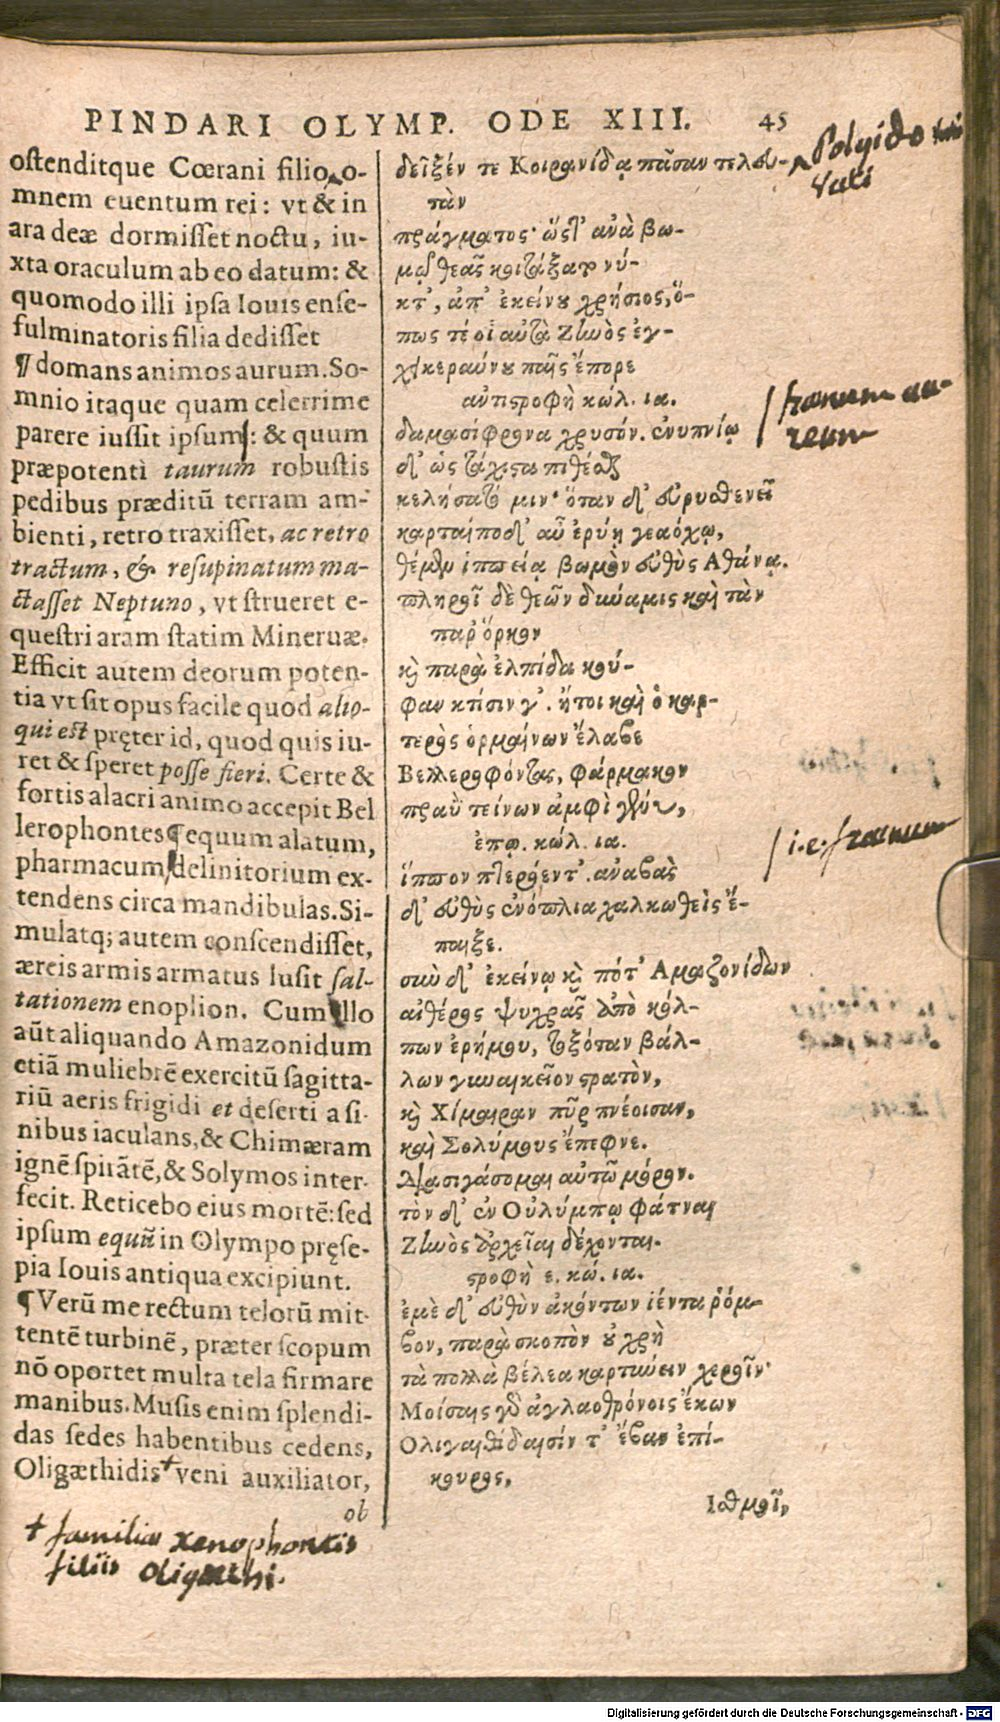 PINDARI OLYMP. ODE XIII. 45
ostenditque Cœrani filio, o-
mnem euentum rei: vt & in
ara deæ dormisset noctu, iu-
xta oraculum ab eo datum: &
quomodo illi ipsa Iouis ense-
fulminatoris filia dedisset
¶ domans animos aurum. So-
mnio itaque quam celerrime
parere iussit ipsum: & quum
præpotenti taurum robustis
pedibus præditū terram am-
bienti, retro traxisset, ac retro
tractum, & resupinatum ma-
ctasset Neptuno, vt strueret e-
questri aram statim Mineruæ.
Efficit autem deorum poten-
tia vt sit opus facile quod alio-
qui est pręter id, quod quis iu-
ret & speret posse fieri. Certe &
fortis alacri animo accepit Bel
lerophontes ¶ equum alatum,
pharmacum delinitorium ex-
tendens circa mandibulas. Si-
mulatq; autem conscendisset,
æreis armis armatus lusit sal-
tationem enoplion. Cum illo
aūt aliquando Amazonidum
etiā muliebrē exercitū sagitta-
riū aeris frigidi et deserti a si-
nibus iaculans, & Chimæram
ignē spirātē, & Solymos inter-
fecit. Reticebo eius mortē: sed
ipsum equū in Olympo pręse-
pia Iouis antiqua excipiunt.
¶ Verū me rectum telorū mit-
tentē turbinē, præter scopum
nō oportet multa tela firmare
manibus. Musis enim splendi-
das sedes habentibus cedens,
Oligæthidis + veni auxiliator,
ob
δεῖξέν τε Κοιρανίδᾳ πᾶσαν τελευ-
τὰν
πράγματος· ὥς τ' ἀνὰ βω-
μῷ θεᾶς κοιτάξατο νύ-
κτ', ἀπ' ἐκείνου χρήσιος, ὅ-
πως τέ οἱ αὐτὰ Ζηνὸς ἐγ-
χεικεραύνου παῖς ἔπορε
ἀντιστροφὴ κώλ. ια.
δαμασίφρονα χρυσόν. ἐνυπνίῳ
δ' ὡς τάχιστα πιθέσθαι
κελήσατό μιν· ὅταν δ' εὐρυσθενεῖ
καρταίποδ' αὖ ἐρύῃ γεαόχῳ,
θέμεν ἱππείᾳ βωμὸν εὐθὺς Ἀθάνᾳ.
πληροῖ δὲ θεῶν δύναμις καὶ τὰν
παρ' ὅρκον
καὶ παρὰ ἐλπίδα κού-
φαν κτίσιν γ'. ἤτοι καὶ ὁ καρ-
τερὸς ὁρμαίνων ἔλαβε
Βελλεροφόντας, φάρμακον
πραῢ τείνων ἀμφὶ γένυι,
ἐπῳ. κώλ. ια.
ἵππον πτερόεντ'. ἀναβὰς
δ' εὐθὺς ἐνόπλια χαλκωθεὶς ἔ-
παιξε.
σὺν δ' ἐκείνῳ καὶ πότ' Ἀμαζονίδων
αἰθέρος ψυχρᾶς ἀπὸ κόλ-
πων ἐρήμου, τοξόταν βάλ-
λων γυναικεῖον στρατὸν,
καὶ Χίμαιραν πῦρ πνέοισαν,
καὶ Σολύμους ἔπεφνε.
Διασιγάσομαι αὐτῷ μόρον.
τὸν δ' ἐν Οὐλύμπῳ φάτναι
Ζηνὸς ἀρχεῖαι δέχονται.
στροφὴ ε. κώ. ια.
ἐμὲ δ' εὐθὺν ἀκόντων ἱέντα ῥόμ-
βον, παρὰ σκοπὸν οὐ χρὴ
τὰ πολλὰ βέλεα καρτύνειν χεροῖν·
Μοίσαις γὰρ ἀγλαοθρόνοις ἑκων
Ὀλιγαιθίδαισίν τ' ἔβαν ἐπί-
κουρος,
Ἰσθμοῖ,
Polyido
vati
fraenum au-
reum
i.e. fraenum
+ familiae Xenophontis
filiis Oligaethi.
Digitalisierung gefördert durch die Deutsche Forschungsgemeinschaft - DFG